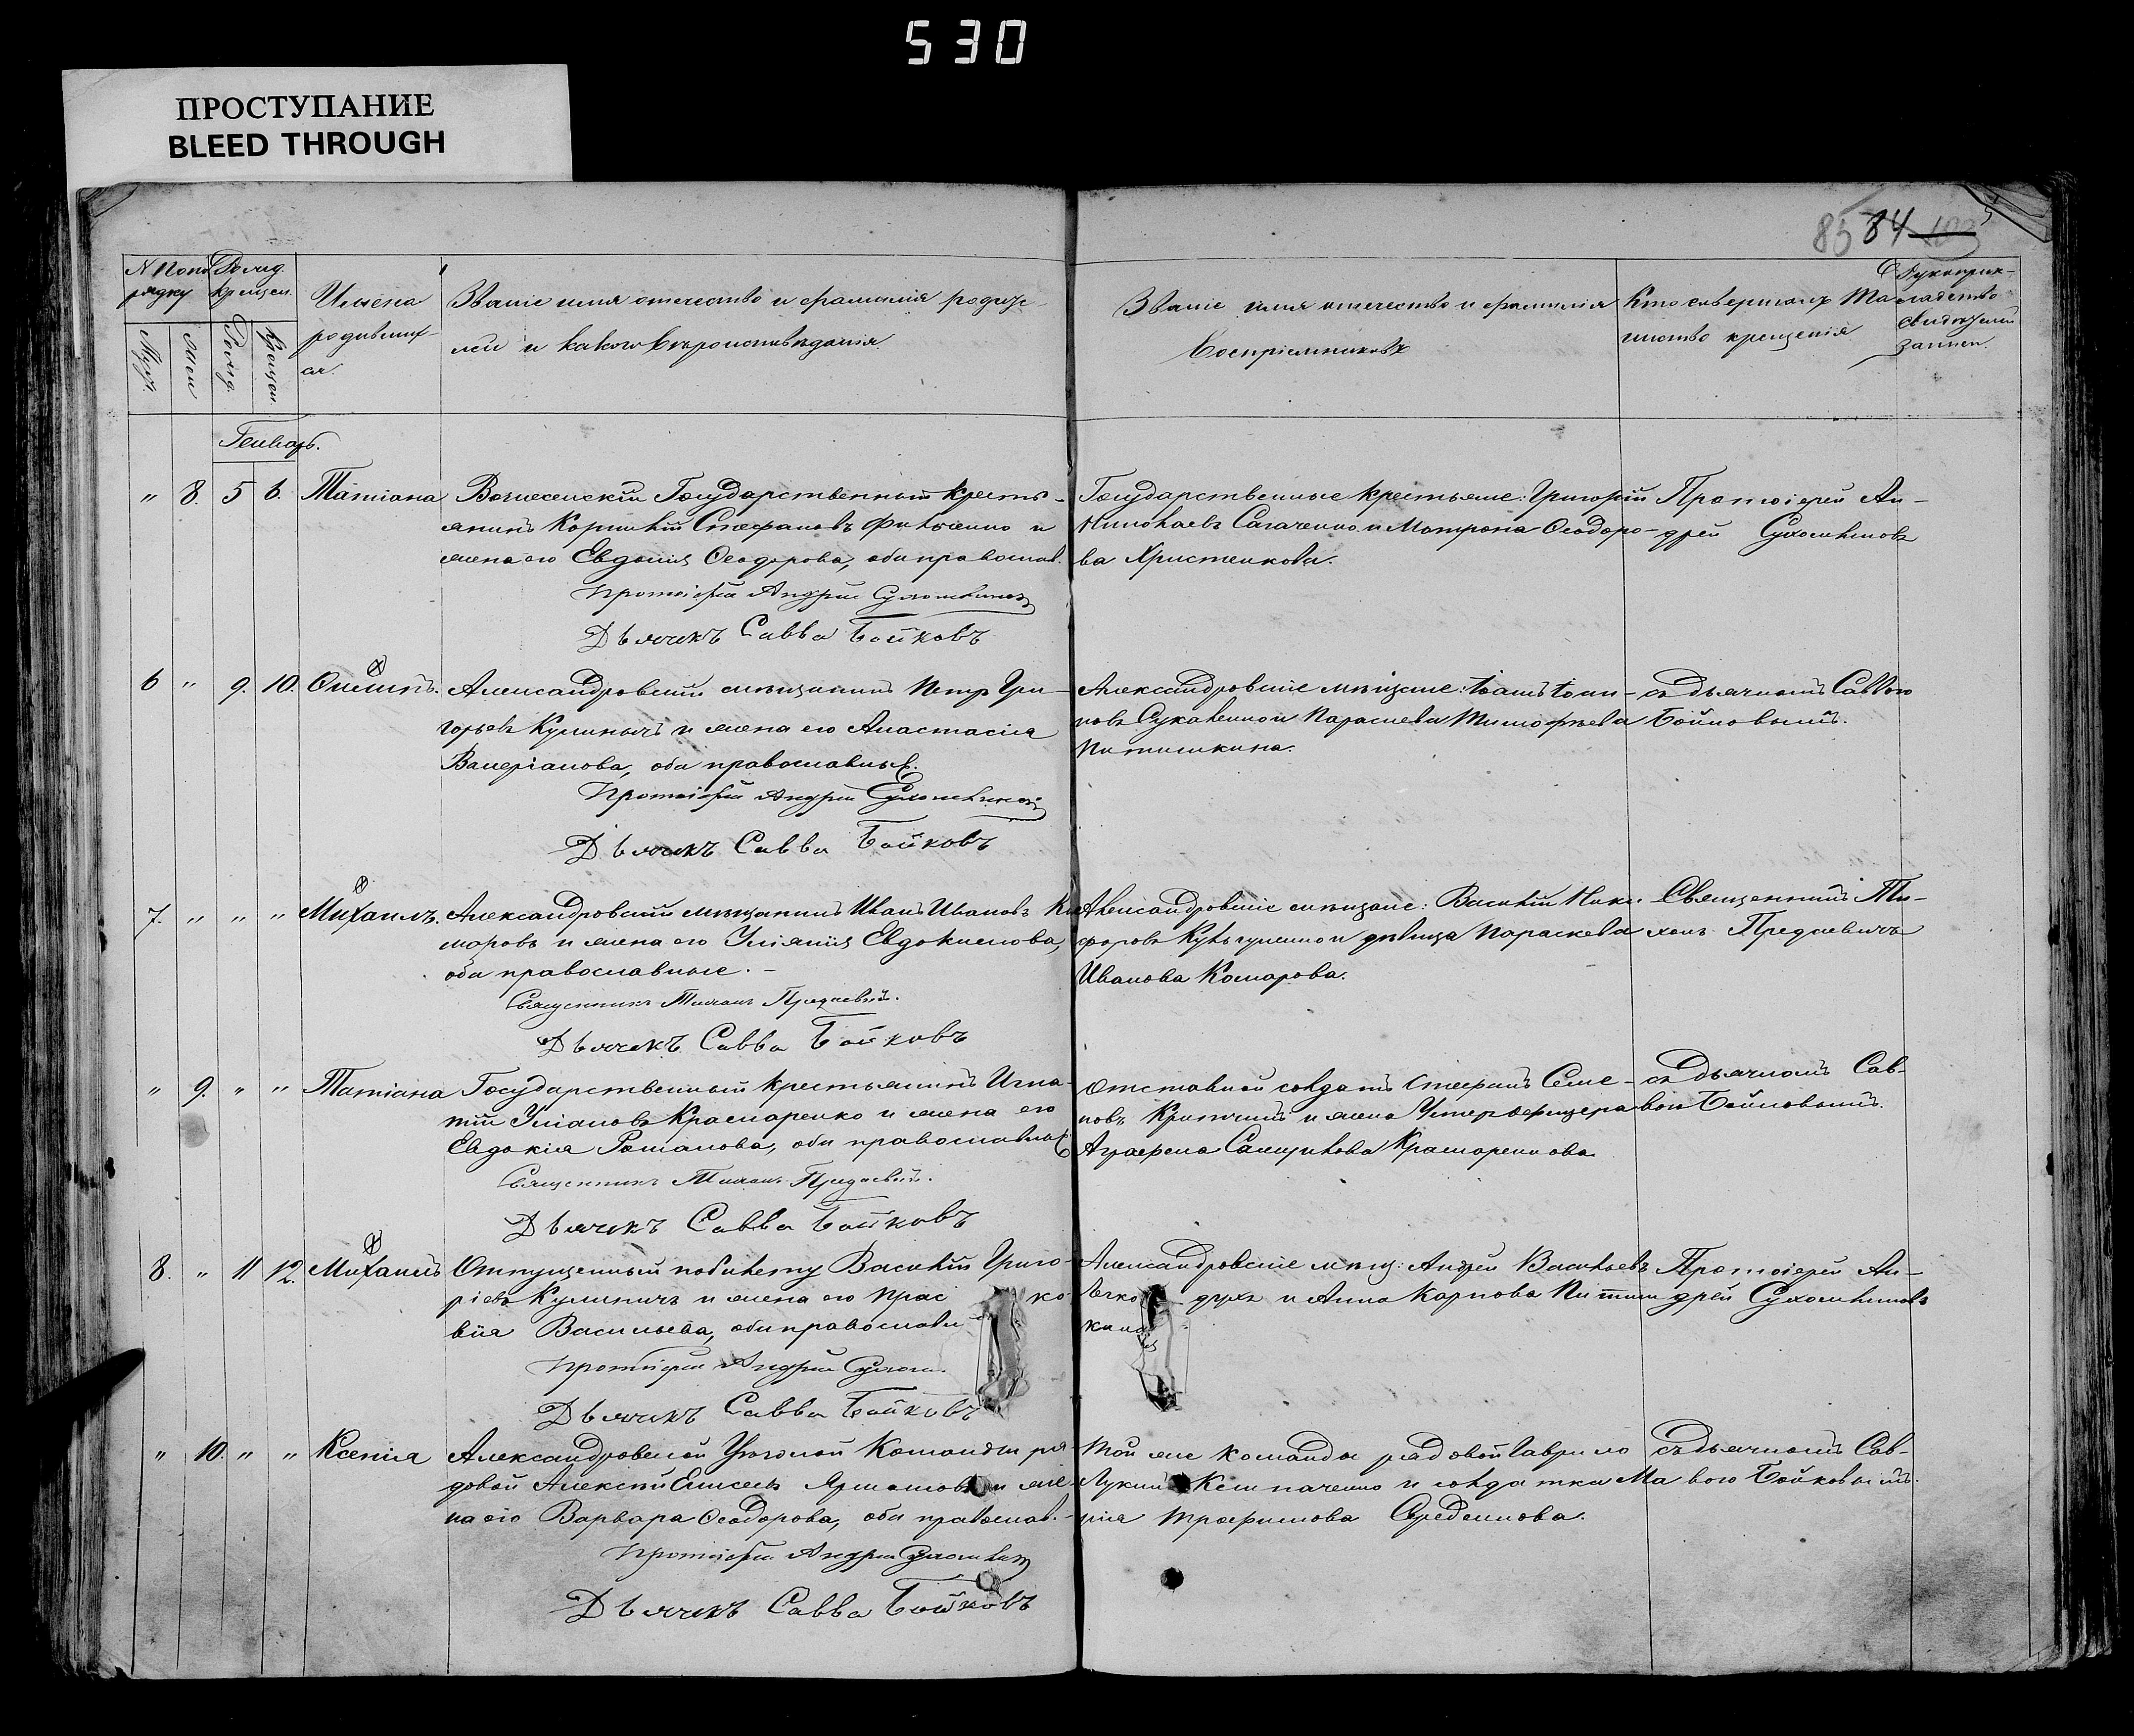 530
ПРОСТУПАНИЕ
BLEED THROUGH
85 84 103
N по по
рядку
Рожд.
крещен.
Муж.
Жен
Рожд.
Крещен.
Имена
родивших-
ся.
Званіе имя отечество и фамилія родите-
лей и какого вѣроисповѣданія.
Званіе имя отечество и фамилія
Воспріемниковъ
Кто совершалъ Та
инство крещенія
Рукоприк-
ладство
свидѣтелей
записи.
Генварь.
" 8. 5 6. Татіана Вознесенскій Государственный кресть-
янинъ Корнилій Стефановъ и
жена его Евдокія Ѳеодорова, оба православ.
Протоіерей Андрей Сухомлиновъ
Дьячекъ Савва Бойковъ
Государственные крестьяне: Григорій
Николаевъ Сагаченко и Матрона Ѳеодоро-
ва Христенкова.
Протоіерей Ан-
дрей Сухомлиновъ
6 " 9. 10. Александровскій мѣщанинъ Петръ Гри-
горьевъ Кулиничъ и жена его Анастасія
Валеріанова, оба православные.
Протоіерей Андрей Сухомлиновъ
Дьячекъ Савва Бойковъ
Александровскіе мѣщане: Іоанъ Іоан-
новъ и Параскева Тимофѣева
Питишкина.
съ дьячкомъ Саввою
Бойковымъ.
7. " " " Михаилъ. Александровскій мѣщанинъ Иванъ Ивановъ Ко
маровъ и жена его Уліянія Евдокимова,
оба православные. -
Священникъ Тихонъ
Дьячекъ Савва Бойковъ
Александровскіе мѣщане: Василій Ники-
форовъ и дѣвица Параскева
Иванова Комарова.
Священникъ Ти-
хонъ
" 9. " " Татіана Государственный крестьянинъ Игна-
тій Уліановъ Крамаренко и жена его
Евдокія Романова, оба православные
Священникъ Тихонъ
Дьячекъ Савва Бойковъ
Отставной солдатъ Стефанъ Семе-
новъ и жена Унтерофицера
Аграфена Самуилова Крамаренкова
съ дьячкомъ Сав-
вою Бойковымъ.
8. " 11 12. Михаилъ Отпущенный по билету Василій Григо-
ріевъ Кулиничъ и жена его Прас ко-
вія Васильева, оба православн
Протоіерей Андрей Сухомл
Дьячекъ Савва Бойковъ
Александровскіе мѣщ: Андрей Васильевъ
Легко духъ и Анна Карпова Питиш
кина
Протоіерей Ан-
дрей Сухомлиновъ
" 10. " " Ксенія Александровской Уѣздной Команды ря-
довой Алексѣй Елисеевъ и же-
на его Варвара Ѳеодорова, оба православ. -
Протоіерей Андрей Сухомлиновъ
Дьячекъ Савва Бойковъ
Той же команды рядовой Гаврило
и солдатка Ма
рія Трофимова Середенкова.
съ дьячкомъ Сав-
вою Бойковымъ.